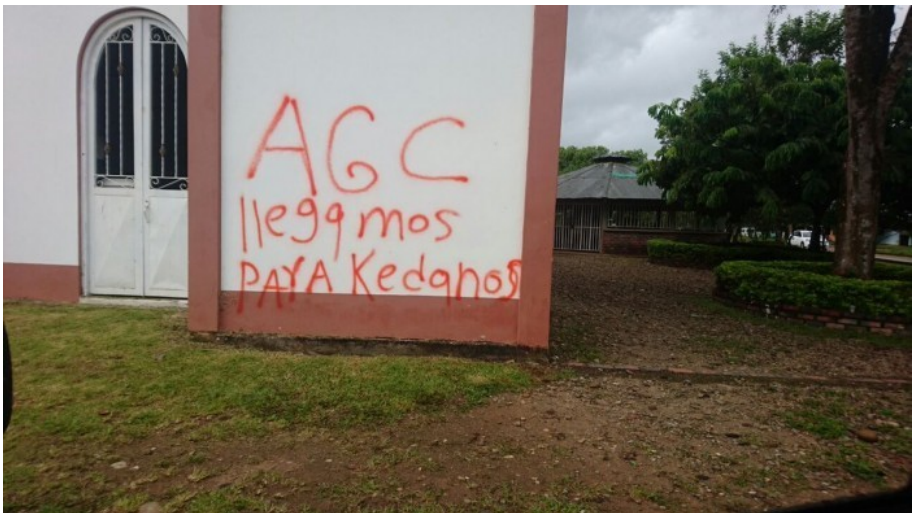 AGC
llegamos
PARA Kedanos